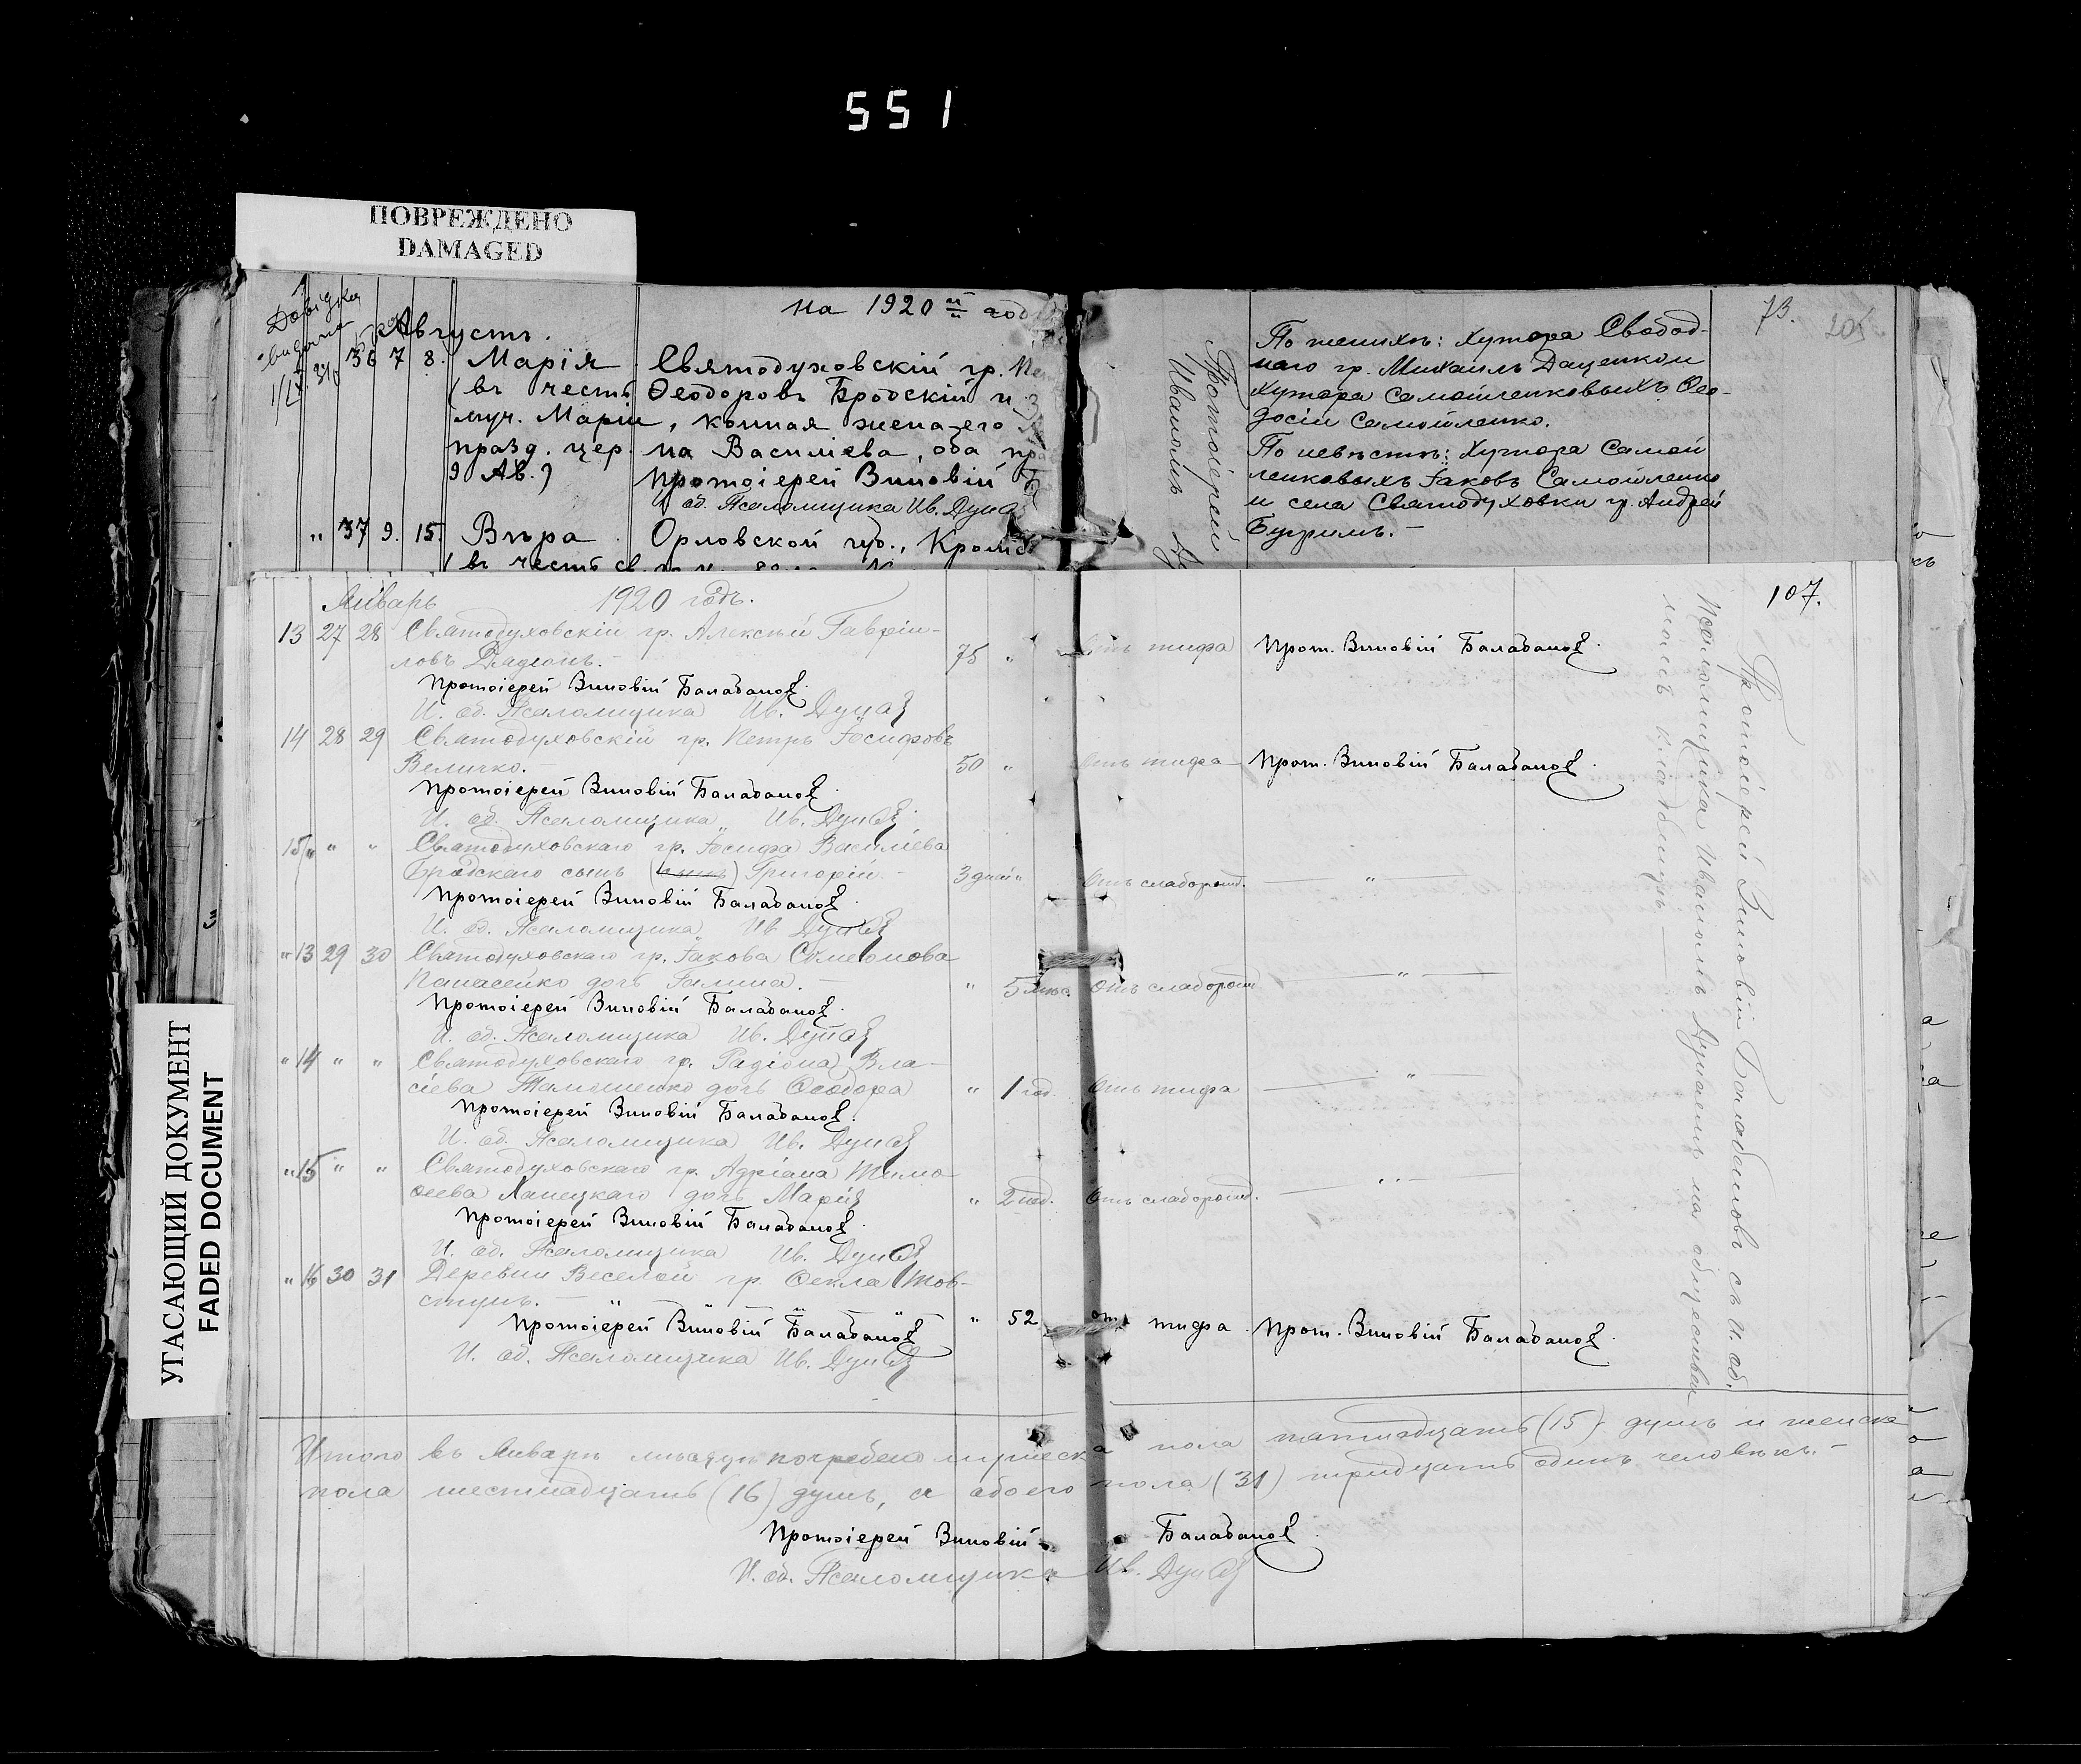 551
ПОВРЕЖДЕНО
DAMAGED
на 1920 й год
Августъ.
36 7 8. Марія Святодуховскій гр.
(въ честь Ѳеодоровъ Бродскій и
муч. Маріи, конная жена его
празд. цер. на Василіева, оба пр
9 Ав.) Протоіерей Зиновій
И. об. Псаломщика Ив. Дунай
" 37 9. 15. Вѣра Орловской губ., Кромс
(въ честь св.
73.
205
По женихѣ: хутора Свобод-
наго гр. Михаилъ Даценко и
хутора Самойленковыхъ Ѳео-
досій Самойленко.
По невѣстѣ: Хутора Самой
ленковыхъ Іаковъ Самойленко
и села Святодуховки гр. Андрей
Бугримъ.-
Протоіерей
Иваномъ
107.
Январь 1920 годъ.
13 27 28 Святодуховскій гр. Алексѣй Гавріи-
ловъ 75 " Отъ тифа Прот. Зиновій Балабановъ.
Протоіерей Зиновій Балабановъ.
И. об. Псаломщика Ив. Дунай
14 28 29 Святодуховскій гр. Петръ Іосифовъ
Величко.- 50 " Отъ тифа Прот. Зиновій Балабановъ.
Протоіерей Зиновій Балабановъ.
И. об. Псаломщика Ив. Дунай
15 " " " Святодуховскаго гр. Іосифа Василіева
Бродскаго сынъ Григорій.- 3 дней " Отъ слаборожд. — " —
Протоіерей Зиновій Балабановъ.
И. об. Псаломщика Ив. Дунай
" 13 29 30 Святодуховскаго гр. Іакова Симеонова
Панасенко дочь Галина.- " 5 мѣс. Отъ слаборожд — " —
Протоіерей Зиновій Балабановъ.
И. об. Псаломщика Ив. Дунай
" 14 " " Святодуховскаго гр. Радіона Вла-
сіева Тимошенко дочь Ѳеодора " 1 год. Отъ тифа — " —
Протоіерей Зиновій Балабановъ.
И. об. Псаломщика Ив. Дунай
" 15 " " Святодуховскаго гр. Адріана Тимо-
ѳеева Лапецкаго дочь Марія " 2 год. Отъ слаборожд. — " —
Протоіерей Зиновій Балабановъ.
И. об. Псаломщика Ив. Дунай
" 16 30 31 Деревни Веселой гр. Ѳекла Тов-
стунъ.- " 52 отъ тифа. Прот. Зиновій Балабановъ.
Протоіерей Зиновій Балабановъ
И. об. Псаломщика Ив. Дунай
Протоіерей Зиновій Балабановъ съ И. об.
Псаломщика Иваномъ Дунаемъ на обществен
номъ кладбищѣ.—
Итого въ Январѣ мѣсяцѣ погребено мужеска пола пятнадцать (15) душъ и женска
пола шестнадцать (16) душъ, а обоего пола (31) тридцать одинъ человѣкъ.-
Протоіерей Зиновій Балабановъ.
И. об. Псаломщика Ив. Дунай
УГАСАЮЩИЙ ДОКУМЕНТ
FADED DOCUMENT